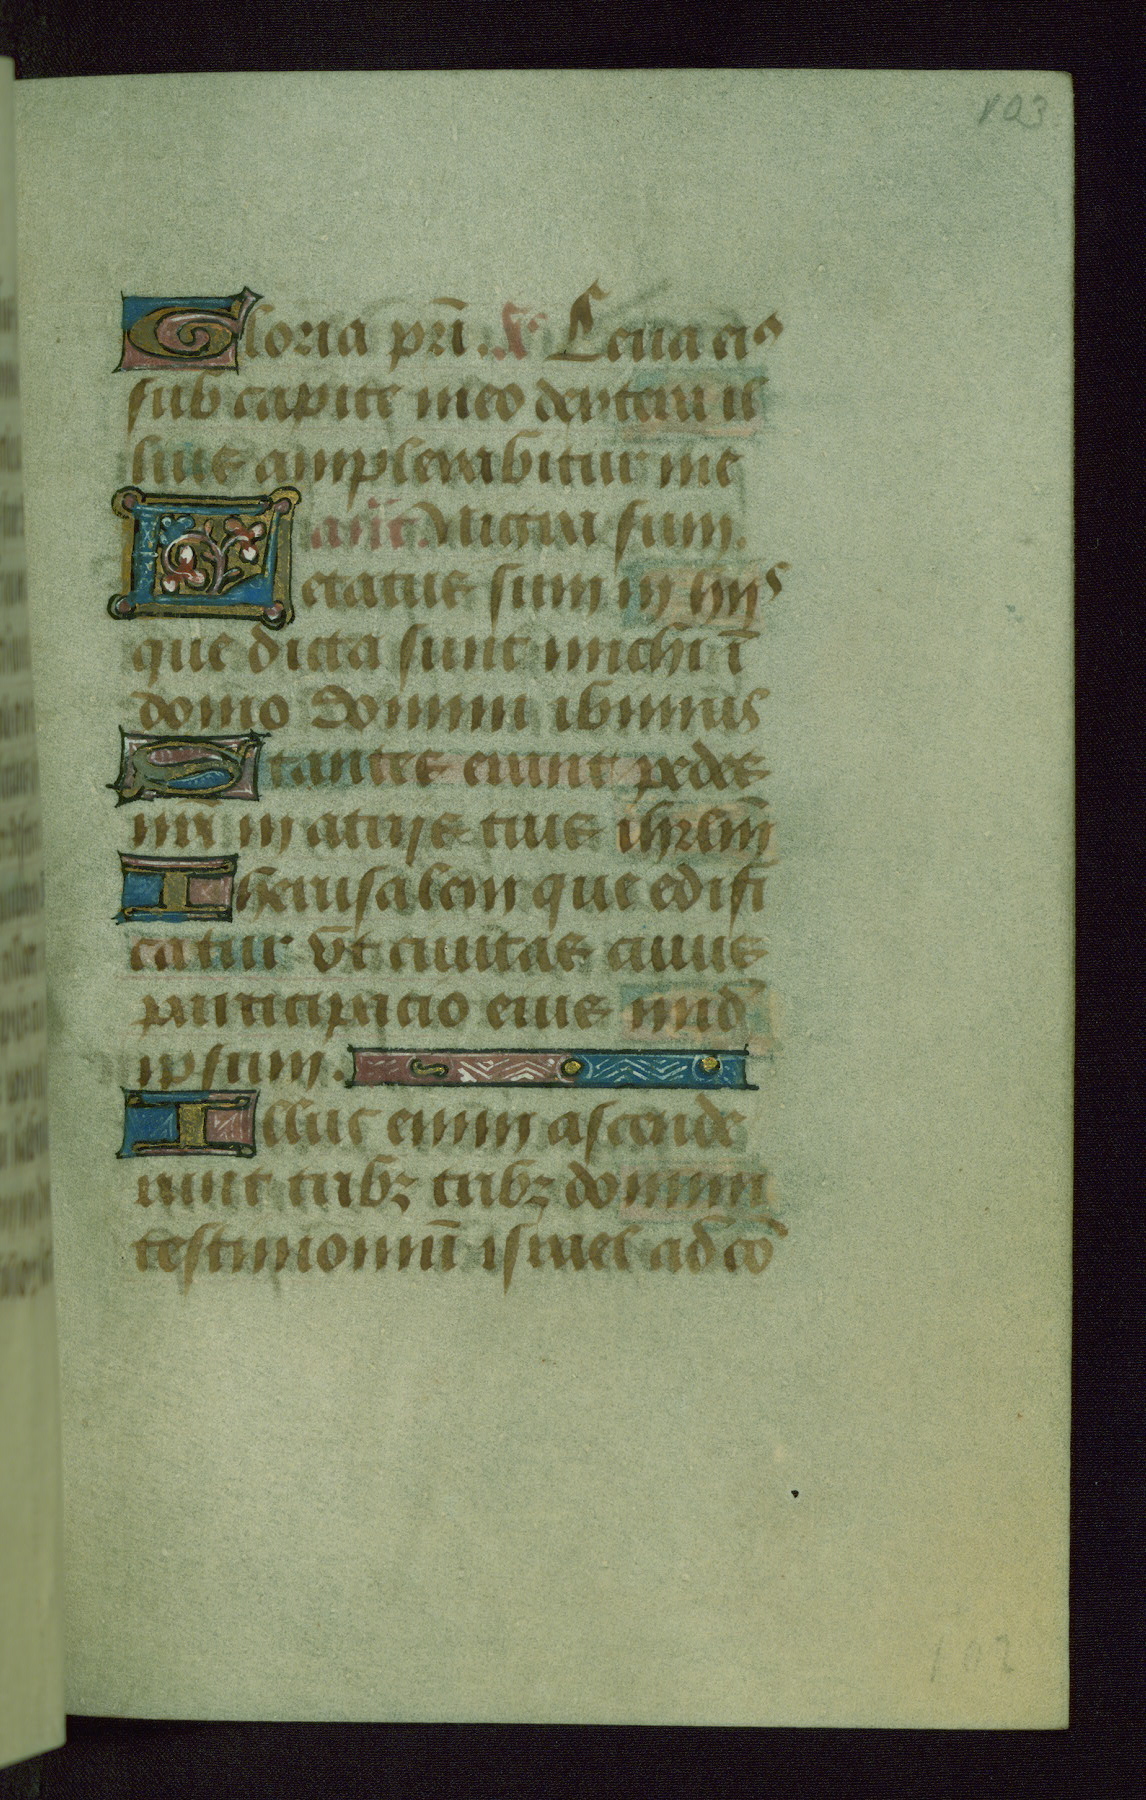 103
Gloria pri. A Leua eis
sub capite meo dextera il
lius amplexabitur me
ant. Nigra sum.
Letatus sum in hijs
que dicta sunt michi ī
domo domini ibimus
Stantes erunt pedes
nr̄i in atrijs tuis ihrlm̄
Iherusalem que edifi
catur vt ciuitas cuius
participacio eius in id
ipsum.
Illuc enim ascende
runt tribꝫ tribꝫ domini
testimoniū israel ad cō
102